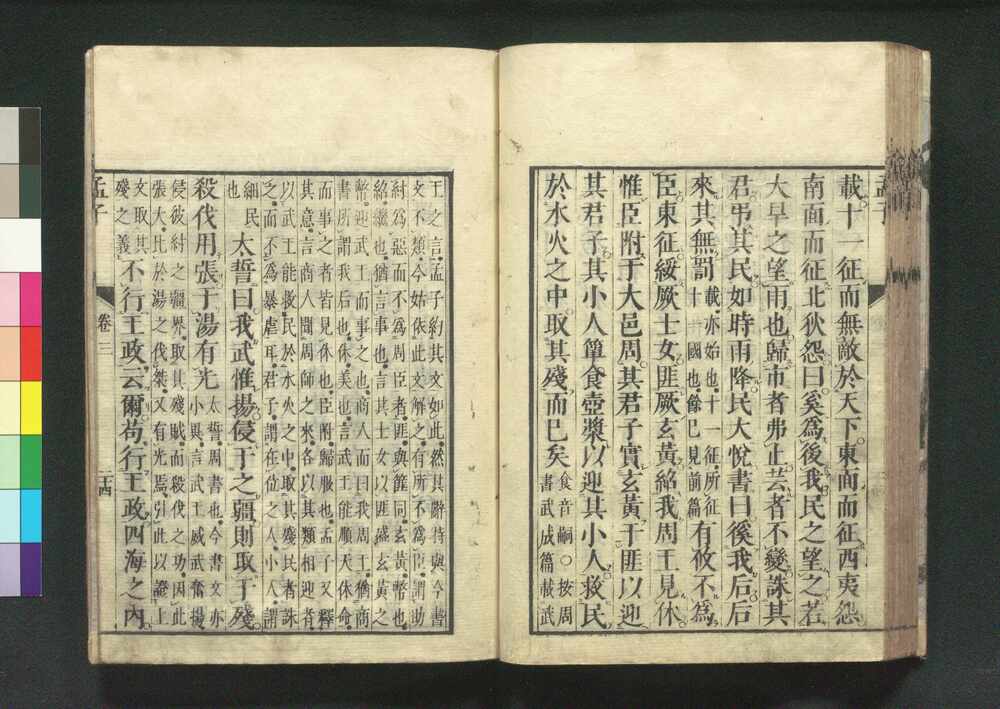 載十一征而無敵於天下東面而征西夷怨
南面而征北狄怨曰奚為後我民之望之若
大旱之望雨也歸市者弗止芸者不變誅其
君弔其民如時雨降民大悅書曰徯我后后
來其無罰載亦始也十一征所征十一國也餘已見前篇有攸不為
臣東征綏厥士女匪厥玄黃紹我周王見休
惟臣附于大邑周其君子實玄黃于匪以迎
其君子其小人簞食壺漿以迎其小人救民
於水火之中取其殘而已矣食音嗣○按周書武成篇載武
王之言孟子約其文如此然其辭特與今書
文不類今姑依此文解之有所不為臣謂助
紂為惡而不為周臣者匪與篚同玄黃幣也
紹繼也猶言事也言其士女以匪盛玄黃之
幣迎武王而事之也商人而曰我周王猶商
書所謂我后也休美也言武王能順天休命
而事之者皆見休也臣附歸服也孟子又釋
其意言商人聞周師之來各以其類相迎者
以武王能救民於水火之中取其殘民者誅
之而不為暴虐耳君子謂在位之人小人謂
細民也太誓曰我武惟揚侵于之疆則取于殘
殺伐用張于湯有光太誓周書也今書文亦小異言武王威武奮揚
侵彼紂之疆界取其殘賊而殺伐之功因此
張大比於湯之伐桀又有光焉引此以證上
文取其殘之義不行王政云爾苟行王政四海之內
孟子
卷三
二十四
孟子